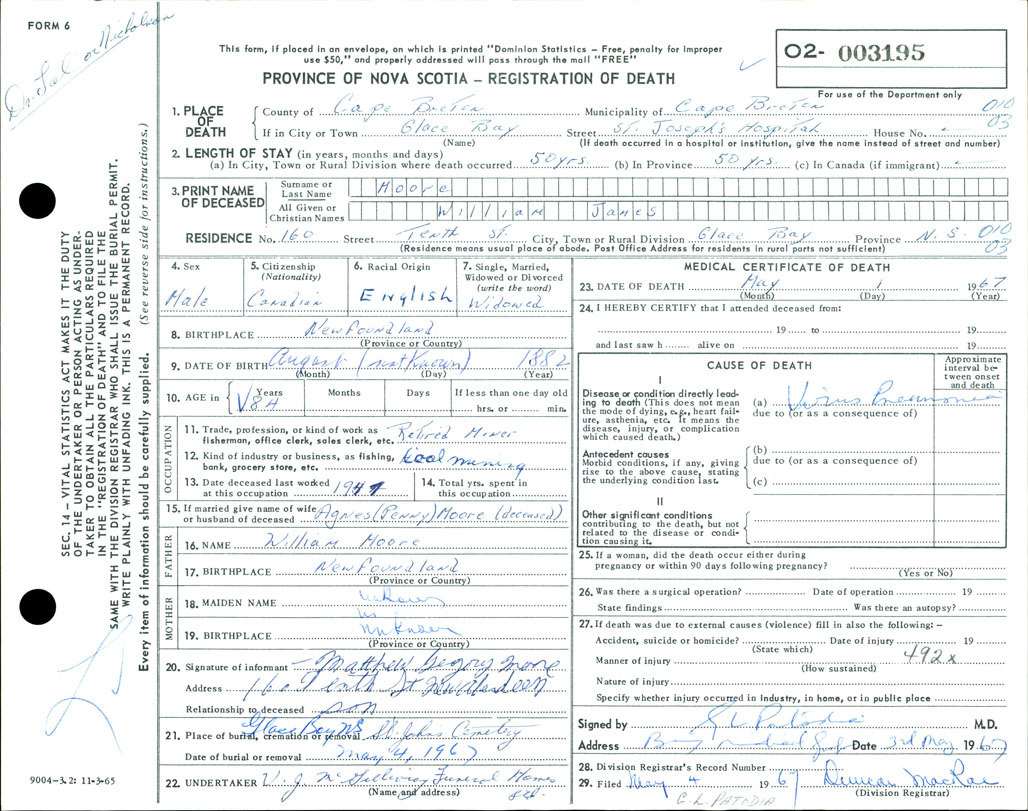 FORM 6
Dr. or Nicholson
This form, if placed in an envelope, on which is printed "Dominion Statistics – Free, penalty for improper
use $50," and properly addressed will pass through the mail "FREE"
PROVINCE OF NOVA SCOTIA – REGISTRATION OF DEATH
02- 003195
For use of the Department only
1. PLACE OF DEATH
County of Cape Breton Municipality of Cape Breton 010
If in City or Town Glace Bay Street St. Joseph's Hospital House No. 03
(Name) (If death occurred in a hospital or institution, give the name instead of street and number)
2. LENGTH OF STAY (in years, months and days)
(a) In City, Town or Rural Division where death occurred 50 yrs. (b) In Province 50 yrs. (c) In Canada (if immigrant)
3. PRINT NAME OF DECEASED
Surname or Last Name Moore
All Given or Christian Names William James
RESIDENCE No. 160 Street Tenth St. City, Town or Rural Division Glace Bay Province N.S. 010
03
(Residence means usual place of abode. Post Office Address for residents in rural parts not sufficient)
4. Sex Male
5. Citizenship (Nationality) Canadian
6. Racial Origin English
7. Single, Married, Widowed or Divorced (write the word) Widowed
8. BIRTHPLACE Newfoundland
(Province or Country)
9. DATE OF BIRTH August (not Known) 1882
(Month) (Day) (Year)
10. AGE in Years 84 Months Days If less than one day old
hrs. or min.
OCCUPATION
11. Trade, profession, or kind of work as Retired Miner
fisherman, office clerk, sales clerk, etc.
12. Kind of industry or business, as fishing, Coal mining
bank, grocery store, etc.
13. Date deceased last worked at this occupation 1947
14. Total yrs. spent in this occupation
15. If married give name of wife or husband of deceased Agnes (Penny) Moore (deceased)
FATHER
16. NAME William Moore
17. BIRTHPLACE Newfoundland
(Province or Country)
MOTHER
18. MAIDEN NAME unknown
19. BIRTHPLACE unknown
(Province or Country)
20. Signature of informant Matthew Gegory Moore
Address 160 Tenth St New Aberdeen
Relationship to deceased son
21. Place of burial, cremation or removal Glace Bay NS St. Johns Cemetery
Date of burial or removal May 4, 1967
22. UNDERTAKER V. J. McGillivray Funeral Home Ltd.
(Name and address)
MEDICAL CERTIFICATE OF DEATH
23. DATE OF DEATH May 1 1967
(Month) (Day) (Year)
24. I HEREBY CERTIFY that I attended deceased from:
19 to 19
and last saw h alive on 19
CAUSE OF DEATH
Approximate interval between onset and death
I
Disease or condition directly leading to death (This does not mean the mode of dying, e.g., heart failure, asthenia, etc. It means the disease, injury, or complication which caused death.)
(a) Virus Pneumonia
due to (or as a consequence of)
Antecedent causes
Morbid conditions, if any, giving rise to the above cause, stating the underlying condition last.
(b)
due to (or as a consequence of)
(c)
II
Other significant conditions
contributing to the death, but not related to the disease or condition causing it.
25. If a woman, did the death occur either during
pregnancy or within 90 days following pregnancy?
(Yes or No)
26. Was there a surgical operation? Date of operation 19
State findings Was there an autopsy?
27. If death was due to external causes (violence) fill in also the following: –
Accident, suicide or homicide? Date of injury 19
(State which)
Manner of injury 492x
(How sustained)
Nature of injury
Specify whether injury occurred in industry, in home, or in public place
Signed by M.D.
Address Date 3rd May 1967
28. Division Registrar's Record Number
29. Filed May 4 1967 Duncan MacRae
(Division Registrar)
C. L. PATODIA
SEC. 14 – VITAL STATISTICS ACT MAKES IT THE DUTY
OF THE UNDERTAKER OR PERSON ACTING AS UNDER-
TAKER TO OBTAIN ALL THE PARTICULARS REQUIRED
IN THE "REGISTRATION OF DEATH" AND TO FILE THE
SAME WITH THE DIVISION REGISTRAR WHO SHALL ISSUE THE BURIAL PERMIT.
WRITE PLAINLY WITH UNFADING INK. THIS IS A PERMANENT RECORD.
Every item of information should be carefully supplied. (See reverse side for instructions.)
9004-3.2: 11-3-65